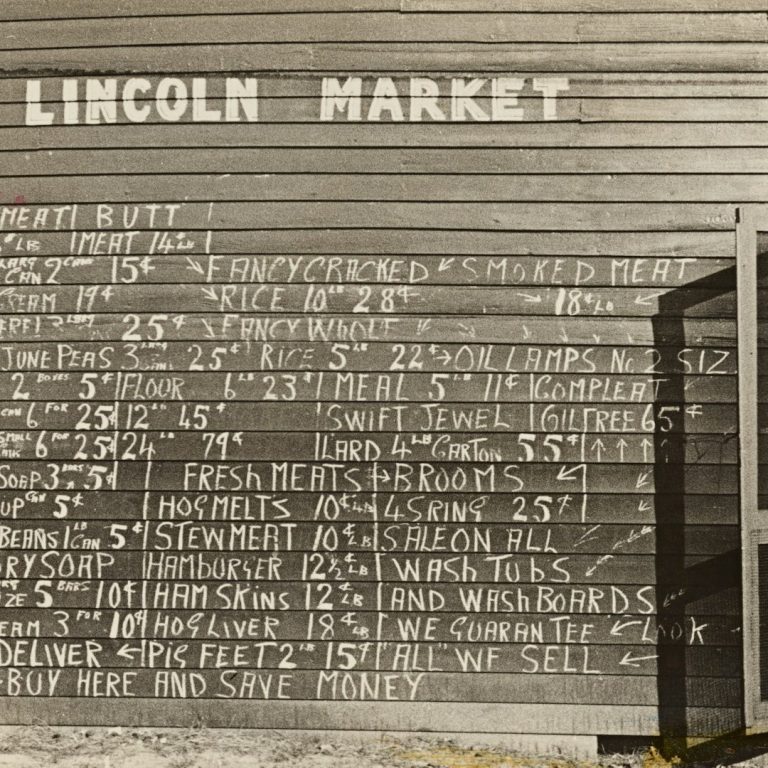 LINCOLN MARKET
MEAT BUTT
LB MEAT 14¢ LB
LARG CAN 2 CANS 15¢ FANCY CRACKED SMOKED MEAT
CREAM 19¢ RICE 10 LB 28¢ 18¢ LB
25¢ FANCY WHOLE
JUNE PEAS 3 25¢ RICE 5 LB 22¢ OIL LAMPS No 2 SIZ
2 BOXES 5¢ FLOUR 6 LB 23¢ MEAL 5 LB 11¢ COMPLEAT
CAN 6 FOR 25¢ 12 LB 45¢ SWIFT JEWEL OIL FREE 65¢
SMALL 6 FOR 25¢ 24 LB 79¢ LARD 4 LB CARTON 55¢
SOAP 3 BARS 5¢ FRESH MEATS BROOMS
UP CAN 5¢ HOG MELTS 10¢ LB 4 SRING 25¢
BEANS 1 LB CAN 5¢ STEW MEAT 10¢ LB SALE ON ALL
RY SOAP HAMBURGER 12½¢ LB WASH TUBS
ZE 5 BARS 10¢ HAM SKINS 12¢ LB AND WASH BOARDS
EAM 3 FOR 10¢ HOG LIVER 18¢ LB WE GUARANTEE LOOK
DELIVER PIG FEET 2 LB 15¢ "ALL" WE SELL
BUY HERE AND SAVE MONEY